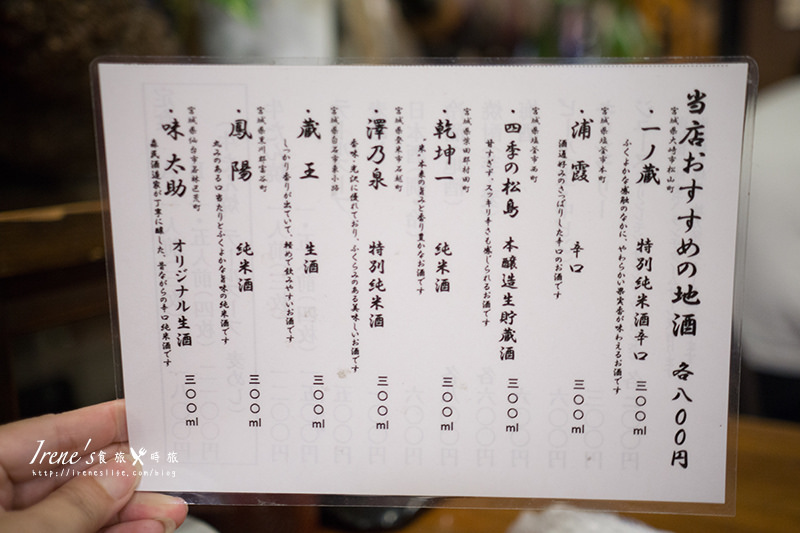 当店おすすめの地酒 各八〇〇円
宮城県大崎市松山町
・一ノ蔵 特別純米酒辛口 三〇〇ml
ふくよかな感触のなかに、やわらかい果実香が味わえるお酒です
宮城県塩釜市本町
・浦霞 辛口 三〇〇ml
酒通好みのさっぱりした辛口のお酒です
宮城県塩釜市
・四季の松島 本醸造生貯蔵酒 三〇〇ml
甘すぎず、スッキリ辛さも感じられるお酒です
宮城県柴田郡村田町
・乾坤一 純米酒 三〇〇ml
米本来の旨みと香り豊かなお酒です
宮城県登米市石越町
・澤乃泉 特別純米酒 三〇〇ml
香味・光沢に優れており、ふくらみのある美味しいお酒です
宮城県白石市東小路
・蔵王 生酒 三〇〇ml
しっかり香りが出ていて、極めて飲みやすいお酒です
宮城県黒川郡富谷町
・鳳陽 純米酒 三〇〇ml
丸みのある口当たりとふくよかな旨味の純米酒です
宮城県仙台市若林区荒町
・味太助 オリジナル生酒 三〇〇ml
森民酒造家が丁寧に醸した、昔ながらの辛口純米酒です
Irene's食旅時旅
http://ireneslife.com/blog